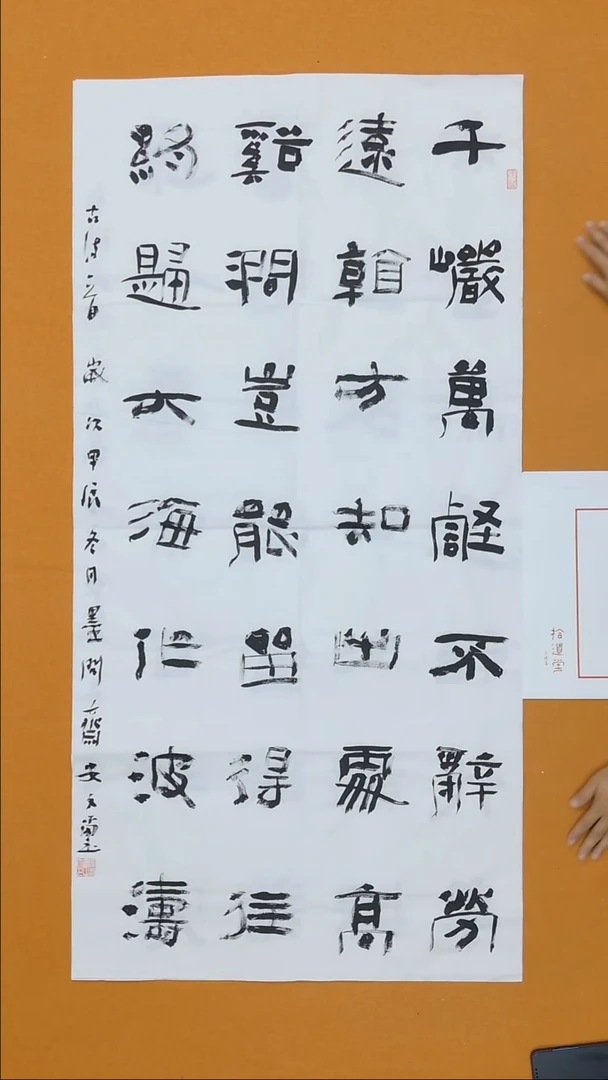 千巖萬壑不辭勞
遠看方知出處高
谿澗豈能留得住
終歸大海作波濤
古詩一首 歲次甲辰冬月墨問齋安文